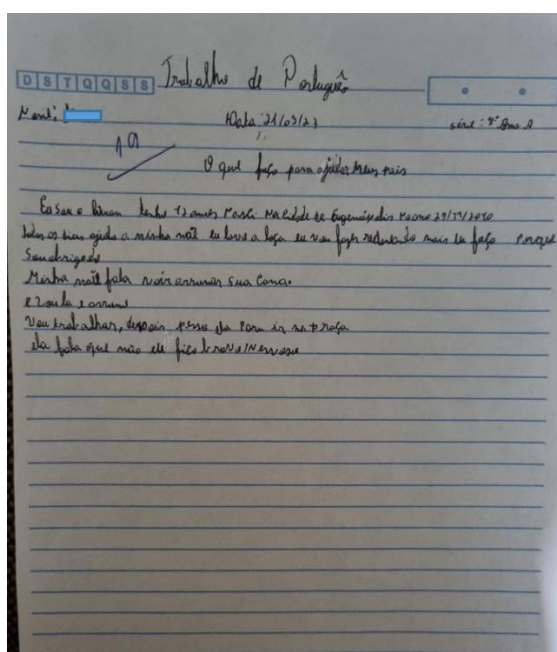 D S T Q Q S S Trabalho de Português
Nome: Data: 21/03/23 série: 7º Ano A
10
O que faço para ajudar meus pais
Eu sou o tenho 12 anos Nasci Na cidade de Eugenópolis no ano
todos os dias ajudo a minha mãe eu lavo a loça eu vou faser mais eu faço Porque
Sou obrigado
Minha mãe fala vai arrumar sua Cama.
e vou la e arrumo
Vou trabalhar, depois peço ela Para ir na praça
ela fala que não eu fico bravo/Nervoso